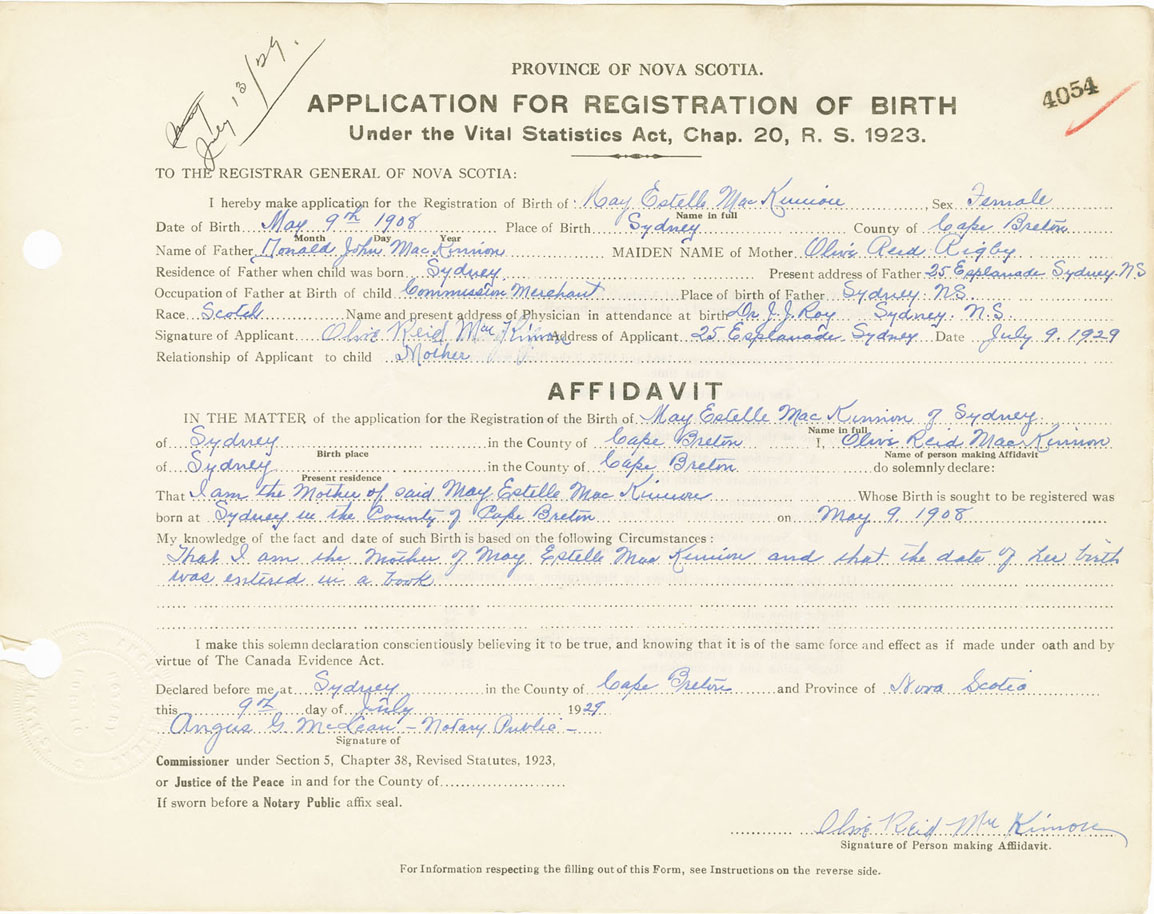 July 13/29.
PROVINCE OF NOVA SCOTIA.
4054
APPLICATION FOR REGISTRATION OF BIRTH
Under the Vital Statistics Act, Chap. 20, R. S. 1923.
TO THE REGISTRAR GENERAL OF NOVA SCOTIA:
I hereby make application for the Registration of Birth of: May Estelle MacKinnon, Sex Female
Name in full
Date of Birth May 9th 1908 Place of Birth Sydney County of Cape Breton
Month Day Year
Name of Father Donald John MacKinnon MAIDEN NAME of Mother Olive Reid Rigby
Residence of Father when child was born Sydney Present address of Father 25 Esplanade Sydney NS
Occupation of Father at Birth of child Commission Merchant Place of birth of Father Sydney NS
Race Scotch Name and present address of Physician in attendance at birth Dr J. J. Roy Sydney. N.S.
Signature of Applicant Olive Reid MacKinnon Address of Applicant 25 Esplanade Sydney Date July 9. 1929
Relationship of Applicant to child Mother
AFFIDAVIT
IN THE MATTER of the application for the Registration of the Birth of May Estelle MacKinnon of Sydney
Name in full
of Sydney in the County of Cape Breton I, Olive Reid MacKinnon
Birth place Name of person making Affidavit
of Sydney in the County of Cape Breton do solemnly declare:
Present residence
That I am the Mother of said May Estelle MacKinnon Whose Birth is sought to be registered was
born at Sydney in the County of Cape Breton on May 9. 1908
My knowledge of the fact and date of such Birth is based on the following Circumstances:
That I am the Mother of May Estelle MacKinnon and that the date of her birth
was entered in a book
I make this solemn declaration conscientiously believing it to be true, and knowing that it is of the same force and effect as if made under oath and by
virtue of The Canada Evidence Act.
Declared before me at Sydney in the County of Cape Breton and Province of Nova Scotia
this 9th day of July 1929
Angus G. McLean - Notary Public -
Signature of
Commissioner under Section 5, Chapter 38, Revised Statutes, 1923,
or Justice of the Peace in and for the County of
If sworn before a Notary Public affix seal.
Olive Reid MacKinnon
Signature of Person making Affidavit.
For Information respecting the filling out of this Form, see Instructions on the reverse side.